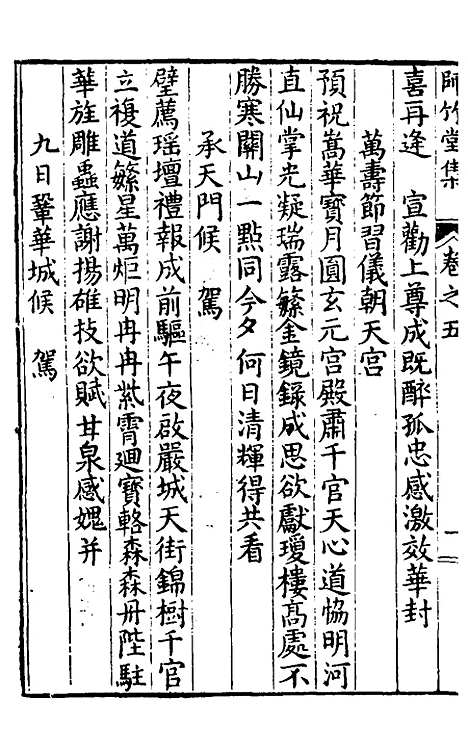 師竹堂集 卷之五
喜再逢　宣勸上尊成既醉孤忠感激效華封
萬壽節習儀朝天宮
預祝嵩華寶月圓玄元宮殿肅千官天心道恊明河
直仙掌光凝瑞露𥿄金鏡錄成思欲獻瓊樓高處不
勝寒關山一點同今夕何日清輝得共看
承天門候　駕
璧薦瑶壇禮報成前驅午夜啟嚴城天街錦樹千官
立複道繁星萬炬明冉冉紫霄迴寶輅森森丹陛駐
華旌雕蟲應謝揚雄技欲賦甘泉感媿并
九日鞏華城候　駕